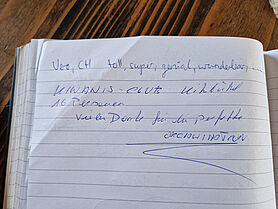 CH toll, super, genial, wunderbar, ....
KIWANIS-CLUB
16 Personen
Vielen Dank für die perfekte
ORGANISATION